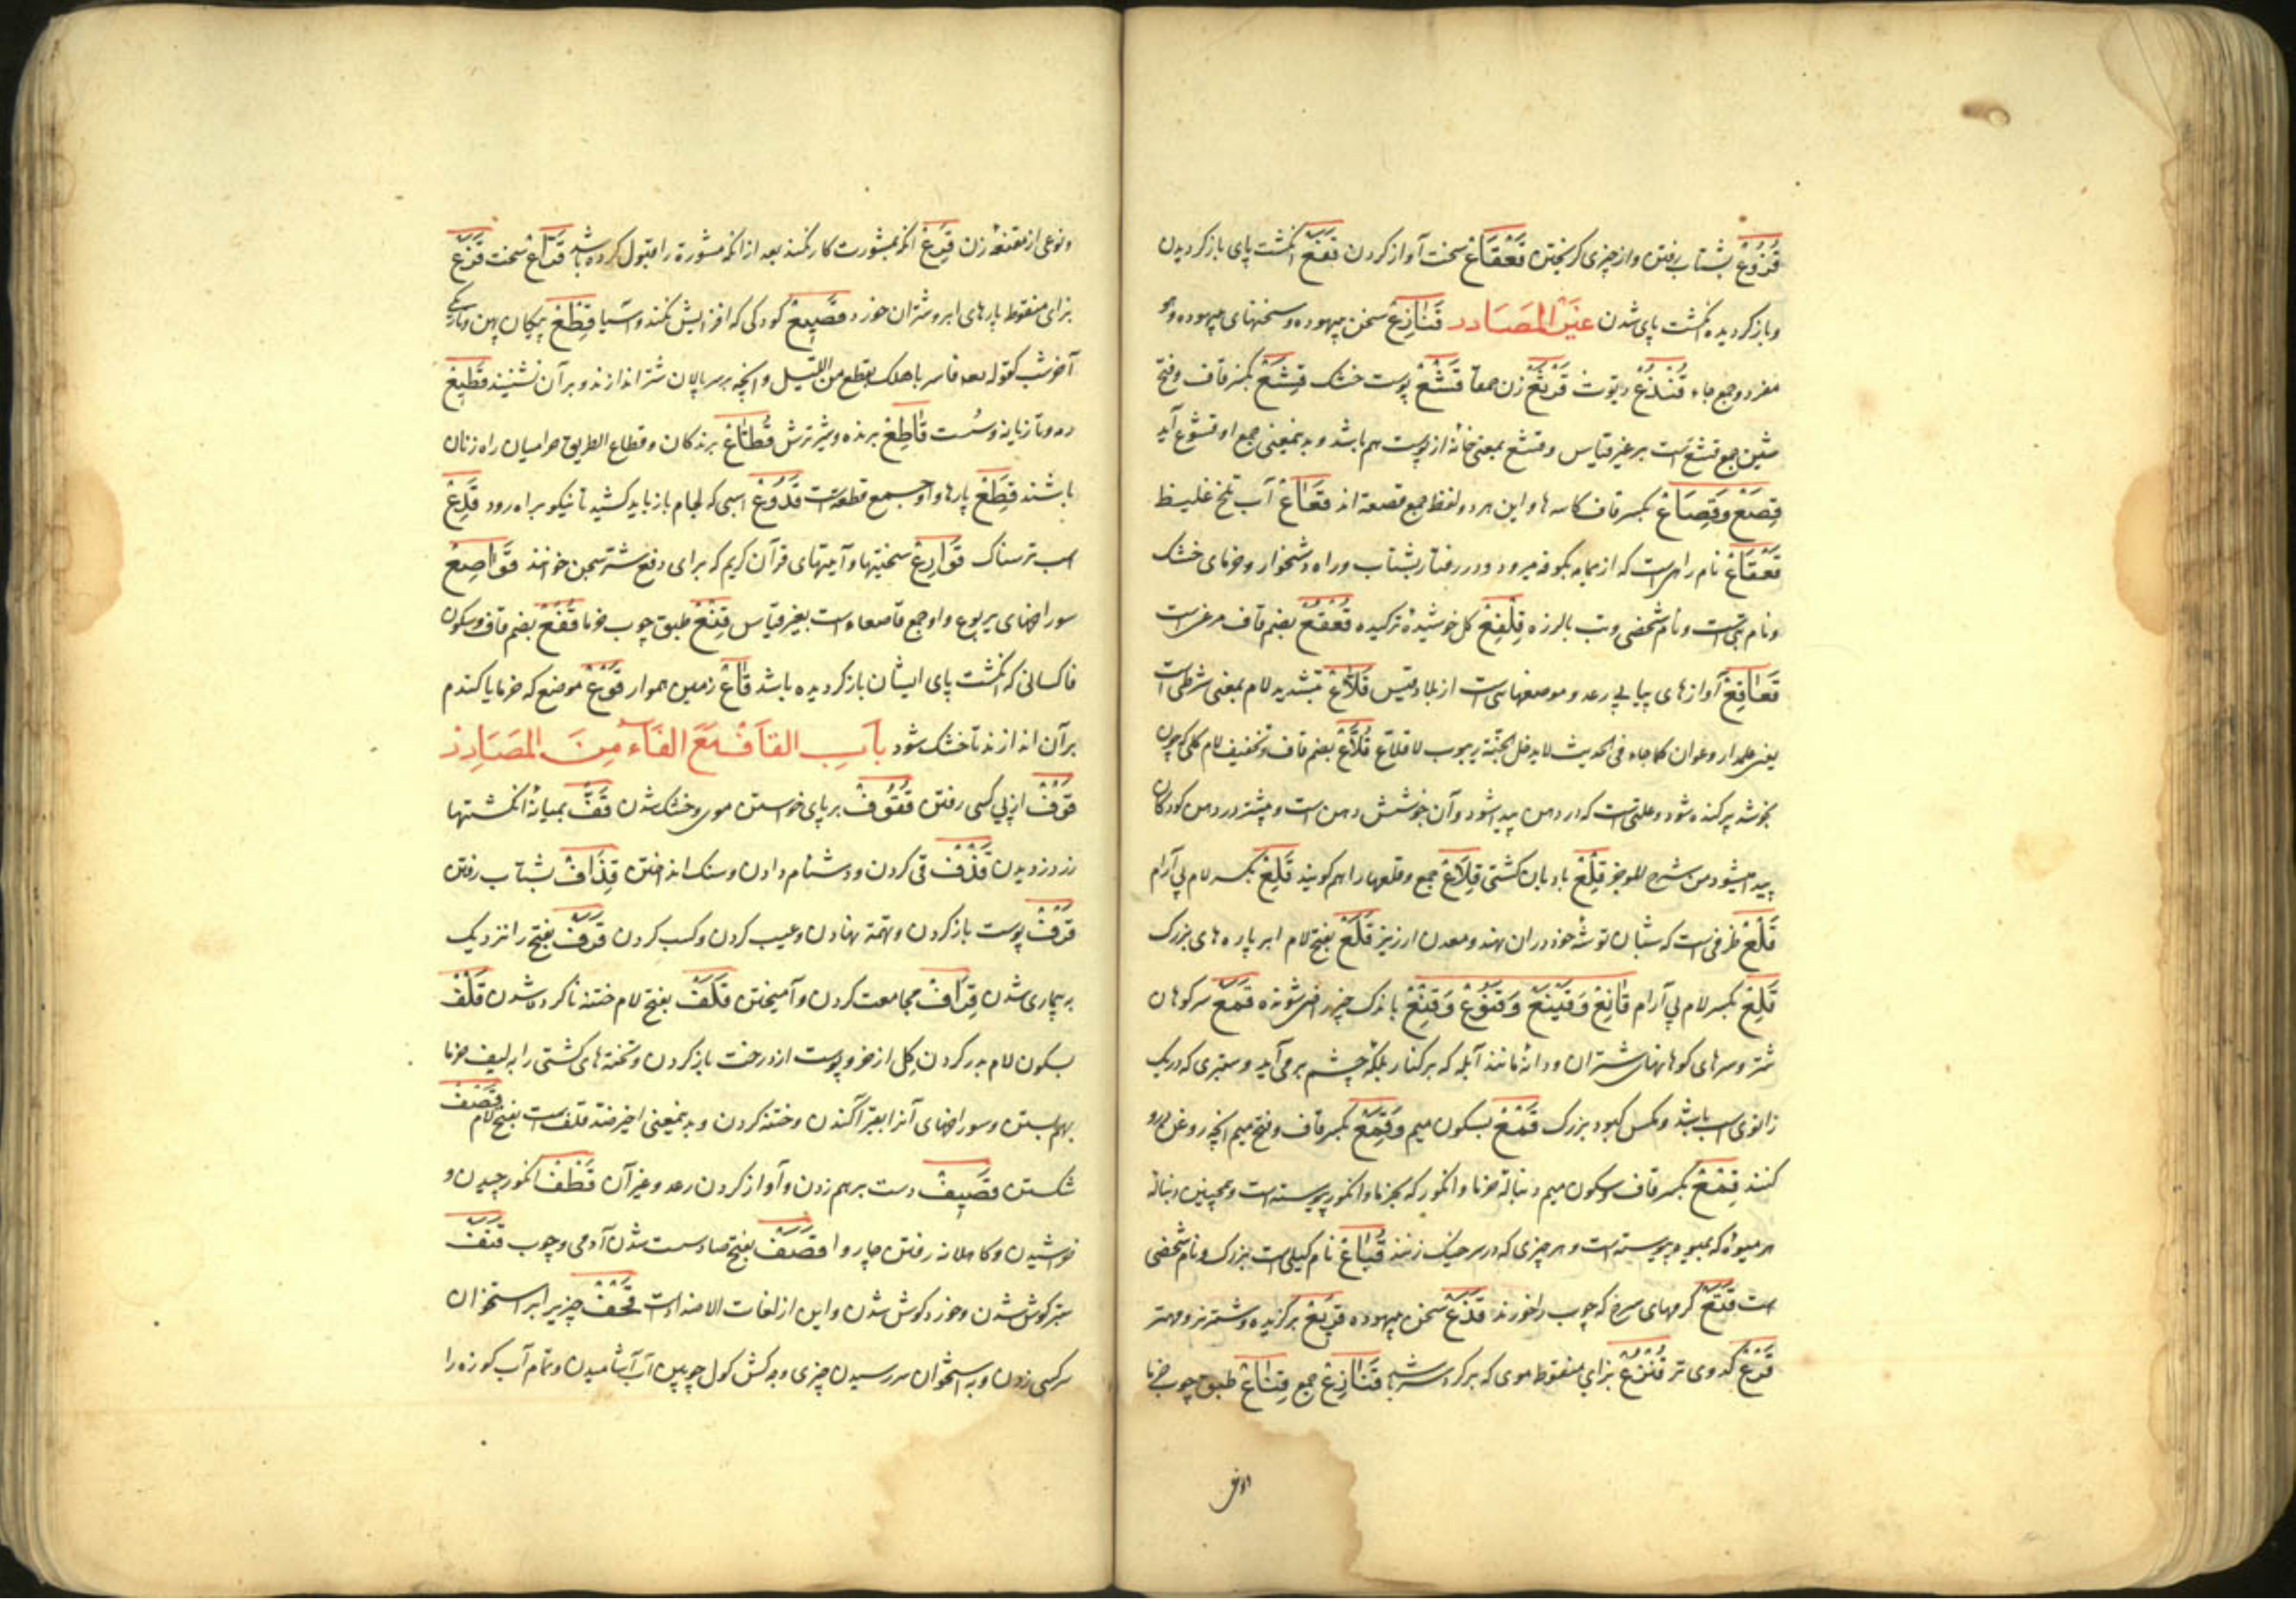 قُزُوْعْ بشتاب رفتن و از چیزی گریختن قَعْقَاعْ سخت آواز کردن قَفَعْ انگشت پای باز گردیدن
و باز گردیده انگشت پای شدن غَيْرُ الْمَصَادِر قَنَازِعْ سخن بیهوده و سخنهای بیهوده و
مفرد و جمع جاء قُنْذُعْ دیوث قَرْثَعْ زن قَشْعْ پوست خشک قِشَعْ بکسر قاف و فتح
شین جمع قشع است بر غیر قیاس و قشع بمعنی خانه از پوست هم باشد و بدینمعنی جمع او قشوع آید
قِصَعْ وَ قِصَاعْ بکسر قاف کاسه ها و این هر دو لفظ جمع قصعة اند قُعَاعْ آب تلخ غلیظ
قَعْقَاعْ نام راهیست که از یمامه بکوفه میرود و در رفتار بشتاب و راه دشخوار و خرمای خشک
و نام شخصی و تب با لرزه قِلْفِعْ گل خوشیده ترکیده قُعْقُعْ بضم قاف مرغیست
قَعَاقِعْ آوازهای پیاپی رعد و موضعهایی است از بلاد قیس قَلَّاعْ بتشدید لام بمعنی شرطی است
یعنی علمدار و عوان کما جاء فی الحدیث لا یدخل الجنة دیبوب لا قلاع قُلَاعْ بضم قاف و تخفیف لام گلی که چون
بخوشد پرکنده شود و علتی است که در دهن پیدا شود و آن جوشش دهن است و بیشتر در دهن کودکان
پیدا میشود من شرح الموجز قِلْعْ بادبان کشتی قِلَاعْ جمع و قلعها را هم گویند قَلِعْ بکسر لام بی آرام
قَلْعْ ظرفی است که شبان توشه خود در آن نهد و معدن ارزیز قَلَعْ بفتح لام ابر پاره های بزرگ
قَلِعْ بکسر لام بی آرام قَانِعْ وَ قَنِيْعْ وَ قَنُوْعْ وَ قَنِعْ باندک چیز راضی شونده قَمَعْ سر کوهان
شتر و سرهای کوهانهای شتران و دانه مانند آبله که بر کنار پلک چشم بر می آید و ستبری که در یک
زانوی اسب باشد و مگس کبود بزرگ قَمْعْ بسکون میم وَ قِمَعْ بکسر قاف و فتح میم آنچه روغن درو
کنند قِمْعْ بکسر قاف و سکون میم دنباله خرما و انگور که بخرما و انگور پیوسته است و همچنین دنباله
هر میوه که بمیوه پیوسته است و هر چیزی که در سر خیک زنند قُبَاعْ نام کیلی است بزرگ و نام شخصی
است قَتَعْ کرمهای سرخ که چوب را خورند قَذَعْ سخن بیهوده قَرِيْعْ برگزیده و شتر نر و مهتر
قَرْعْ کدوی تر قُنْزُعْ بزای منقوط موی که بر گرد سر باشد قَنَازِعْ جمع قِنَاعْ طبق چوب خرما
و نوعی از مقنعه زن قَرِعْ آنکه بمشورت کار نکند بعد از آنکه مشورة را قبول کرده باشد قَرَّاعْ سخت قَزَعْ
بزای منقوط پارهای ابر و شتران خورد قَصِيْعْ کودکی که افزایش نکند و آسیا قِطْعْ پیکان پهن و تاریکی
آخر شب کقوله تعالی فاسر باهلک بقطع من اللیل و آنچه بر سر پالان شتر اندازند و بر آن نشینند قَطِيْعْ
رمه و تازیانه و سست قَاطِعْ برنده و شیر ترش قُطَّاعْ برندگان و قطاع الطریق حرامیان راه زنان
باشند قِطَعْ پارها و او جمع قطعة است قَدُوْعْ اسپی که لجام باز باید کشید تا نیکو براه رود قَدِعْ
اسب ترسناک قَوَارِعْ سختیها و آیتهای قرآن کریم که برای دفع شر جن خوانند قَوَاصِعْ
سوراخهای یربوع و او جمع قاصعاء است بغیر قیاس قِنْعْ طبق چوب خرما قُفْعْ بضم قاف و سکون
فا کسانی که انگشت پای ایشان باز گردیده باشد قَاعْ زمین هموار قَوْعْ موضع که خرما یا گندم
بر آن اندازند تا خشک شود بَابُ الْقَافْ مَعَ الْفَاء مِنَ الْمَصَادِرْ
قَوْفْ از پی کسی رفتن قُفُوْفْ بر پای خواستن موی و خشک شدن قَفّْ بمیانه انگشتها
زر دزدیدن قَذْفْ قی کردن و دشنام دادن و سنگ انداختن قِذَافْ بشتاب رفتن
قَرْفْ پوست باز کردن و تهمة نهادن و عیب کردن و کسب کردن قَرَفْ بفتح را نزدیک
به بیماری شدن قِرَافْ مجامعت کردن و آمیختن قَلَفْ بفتح لام ختنه ناکرده شدن قَلْفْ
بسکون لام بدر کردن گل از خم و پوست از درخت باز کردن و تخته های کشتی را به لیف خرما
بهم بستن و سوراخهای آنرا بقیر آگندن و ختنه کردن و بدینمعنی اخیر قلف است بفتح لام قَصْفْ
شکستن قَصِيْفْ دست بر هم زدن و آواز کردن رعد و غیر آن قَطْفْ انگور چیدن و
خراشیدن و کاهلانه رفتن چاروا قَصَفْ بفتح صاد سست شدن آدمی و چوب قَنَفْ
ستبر گوش شدن و خورد گوش شدن و این از لغات الاضداد است قَحْفْ چیزی بر استخوان
سر کسی زدن و به استخوان سر رسیدن چیزی و به کش کول چوبین آب آشامیدن و تمام آب کوزه را